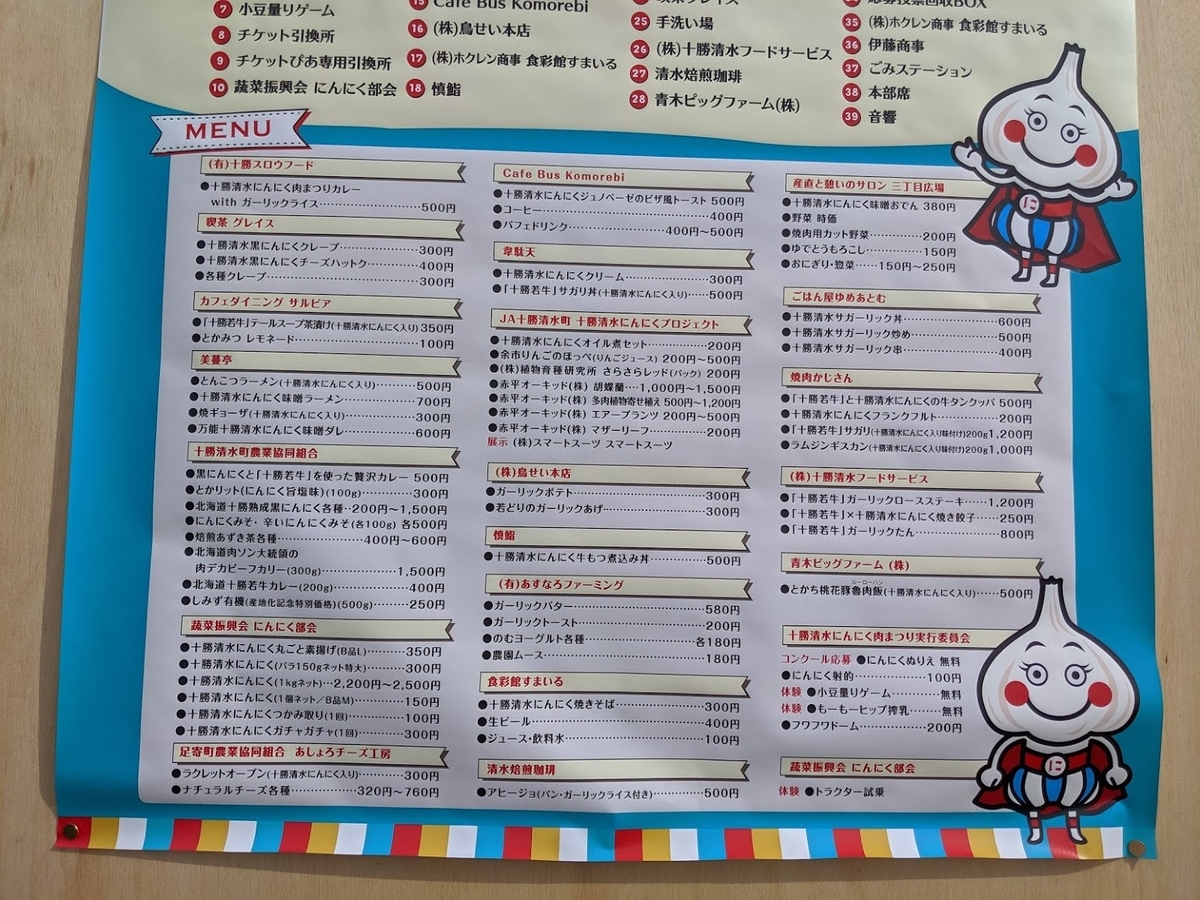 7 小豆量りゲーム
8 チケット引換所
9 チケットぴあ専用引換所
10 蔬菜振興会 にんにく部会
15 Cafe Bus Komorebi
16 (株)鳥せい本店
17 (株)ホクレン商事 食彩館すまいる
18 慎鮨
25 手洗い場
26 (株)十勝清水フードサービス
27 清水焙煎珈琲
28 青木ピッグファーム(株)
35 (株)ホクレン商事 食彩館すまいる
36 伊藤商事
37 ごみステーション
38 本部席
39 音響
MENU
(有)十勝スロウフード
●十勝清水にんにく肉まつりカレー
with ガーリックライス…………500円
喫茶 グレイス
●十勝清水黒にんにくクレープ…………300円
●十勝清水黒にんにくチーズハットク………400円
●各種クレープ…………300円
カフェダイニング サルビア
●「十勝若牛」テールスープ茶漬け(十勝清水にんにく入り)350円
●とかみつ レモネード…………100円
美蔓亭
●とんこつラーメン(十勝清水にんにく入り)………500円
●十勝清水にんにく味噌ラーメン…………700円
●焼ギョーザ(十勝清水にんにく入り)…………300円
●万能十勝清水にんにく味噌ダレ…………600円
十勝清水町農業協同組合
●黒にんにくと「十勝若牛」を使った贅沢カレー 500円
●とかリット(にんにく旨塩味)(100g)…………300円
●北海道十勝熟成黒にんにく各種‥200円～1,500円
●にんにくみそ・辛いにんにくみそ(各100g) 各500円
●焙煎あずき茶各種…………400円～600円
●北海道肉ソン大統領の
肉デカビーフカリー(300g)…………1,500円
●北海道十勝若牛カレー(200g)…………400円
●しみず有機(産地化記念特別価格)(500g)………250円
蔬菜振興会 にんにく部会
●十勝清水にんにく丸ごと素揚げ(B品L)………350円
●十勝清水にんにく(バラ150gネット特大)………300円
●十勝清水にんにく(1kgネット)…2,200円～2,500円
●十勝清水にんにく(1個ネット／B品M)………150円
●十勝清水にんにくつかみ取り(1回)…………100円
●十勝清水にんにくガチャガチャ(1回)…………300円
足寄町農業協同組合 あしょろチーズ工房
●ラクレットオーブン(十勝清水にんにく入り)…………300円
●ナチュラルチーズ各種…………320円～760円
Cafe Bus Komorebi
●十勝清水にんにくジェノベーゼのピザ風トースト 500円
●コーヒー…………400円
●パフェドリンク…………400円～500円
韋駄天
●十勝清水にんにくクリーム…………300円
●「十勝若牛」サガリ丼(十勝清水にんにく入り)……500円
JA十勝清水町 十勝清水にんにくプロジェクト
●十勝清水にんにくオイル煮セット…………200円
●余市りんごのほっぺ(りんごジュース) 200円～500円
●(株)植物育種研究所 さらさらレッド(パック) 200円
●赤平オーキッド(株) 胡蝶蘭‥‥1,000円～1,500円
●赤平オーキッド(株) 多肉植物寄せ植え 500円～1,200円
●赤平オーキッド(株) エアープランツ 200円～500円
●赤平オーキッド(株) マザーリーフ…………200円
展示 (株)スマートスーツ スマートスーツ
(株)鳥せい本店
●ガーリックポテト…………300円
●若どりのガーリックあげ…………300円
慎鮨
●十勝清水にんにく牛もつ煮込み丼…………500円
(有)あすなろファーミング
●ガーリックバター…………580円
●ガーリックトースト…………200円
●のむヨーグルト各種…………各180円
●農園ムース…………180円
食彩館すまいる
●十勝清水にんにく焼きそば…………300円
●生ビール…………400円
●ジュース・飲料水…………100円
清水焙煎珈琲
●アヒージョ(パン・ガーリックライス付き)………500円
産直と憩いのサロン 三丁目広場
●十勝清水にんにく味噌おでん 380円
●野菜 時価
●焼肉用カット野菜…………200円
●ゆでとうもろこし…………150円
●おにぎり・惣菜……150円～250円
ごはん屋ゆめあとむ
●十勝清水サガーリック丼…………600円
●十勝清水サガーリック炒め…………500円
●十勝清水サガーリック串…………400円
焼肉かじさん
●「十勝若牛」と十勝清水にんにくの牛タンクッパ 500円
●十勝清水にんにくフランクフルト…………200円
●「十勝若牛」サガリ(十勝清水にんにく入り味付け)200g1,200円
●ラムジンギスカン(十勝清水にんにく入り味付け)200g1,000円
(株)十勝清水フードサービス
●「十勝若牛」ガーリックロースステーキ……1,200円
●「十勝若牛」×十勝清水にんにく焼き餃子……250円
●「十勝若牛」ガーリックたん…………800円
青木ピッグファーム (株)
●とかち桃花豚魯肉飯(十勝清水にんにく入り)……500円
ルーローハン
十勝清水にんにく肉まつり実行委員会
コンクール応募 ●にんにくぬりえ 無料
●にんにく射的…………100円
体験 ●小豆量りゲーム………無料
体験 ●もーもーヒップ搾乳………無料
●フワフワドーム…………200円
蔬菜振興会 にんにく部会
体験 ●トラクター試乗
に
に